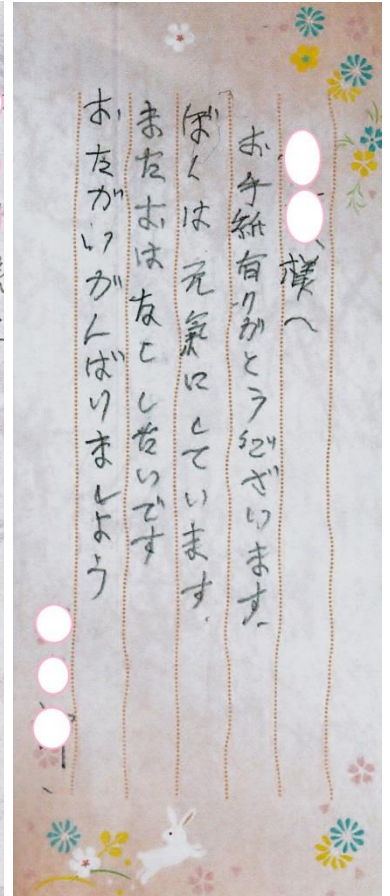 様へ
お手紙有りがとうございます.
ぼくは元氣にしています.
またおはなししたいです
おたがいがんばりましょう